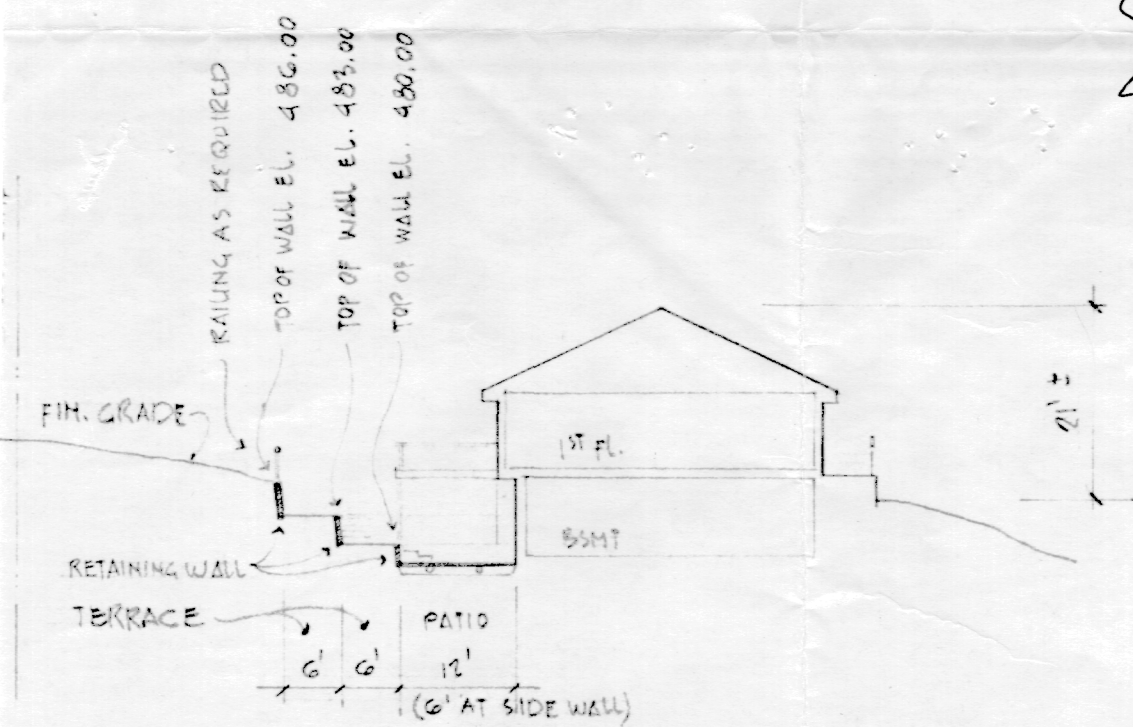 RAILING AS REQUIRED
TOP OF WALL EL. 486.00
TOP OF WALL EL. 483.00
TOP OF WALL EL. 480.00
FIN. GRADE
1ST FL.
BSMT
21' ±
RETAINING WALL
TERRACE
PATIO
6'
6'
12'
(6' AT SIDE WALL)